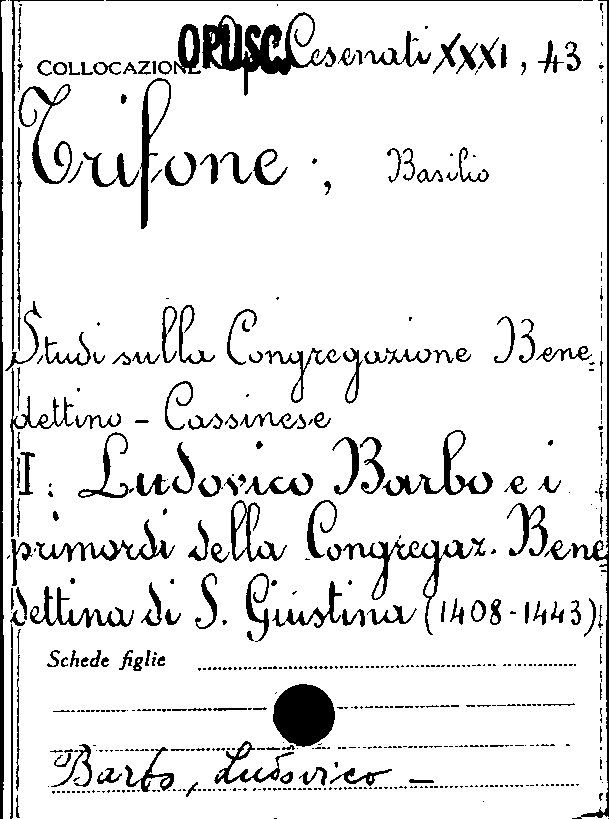 COLLOCAZIONE OPUSC. Cesenati XXXI, 43
Trifone, Basilio
Studi sulla Congregazione Bene=
dettino - Cassinese
I: Ludovico Barbo e i
primordi della Congregaz. Bene
dettina di S. Giustina (1408-1443)
Schede figlie
Barbo, Ludovico -